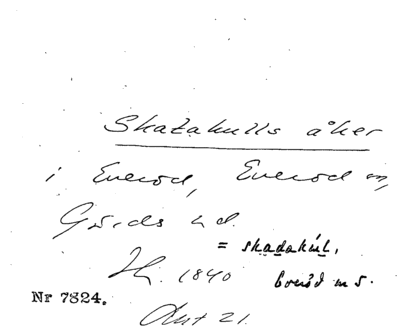 Skatakulls åker
i Everöd, Everöd sn,
Gärds hd.
= skadakúl,
Jh. 1840
Nr 7824.
Akt 21.